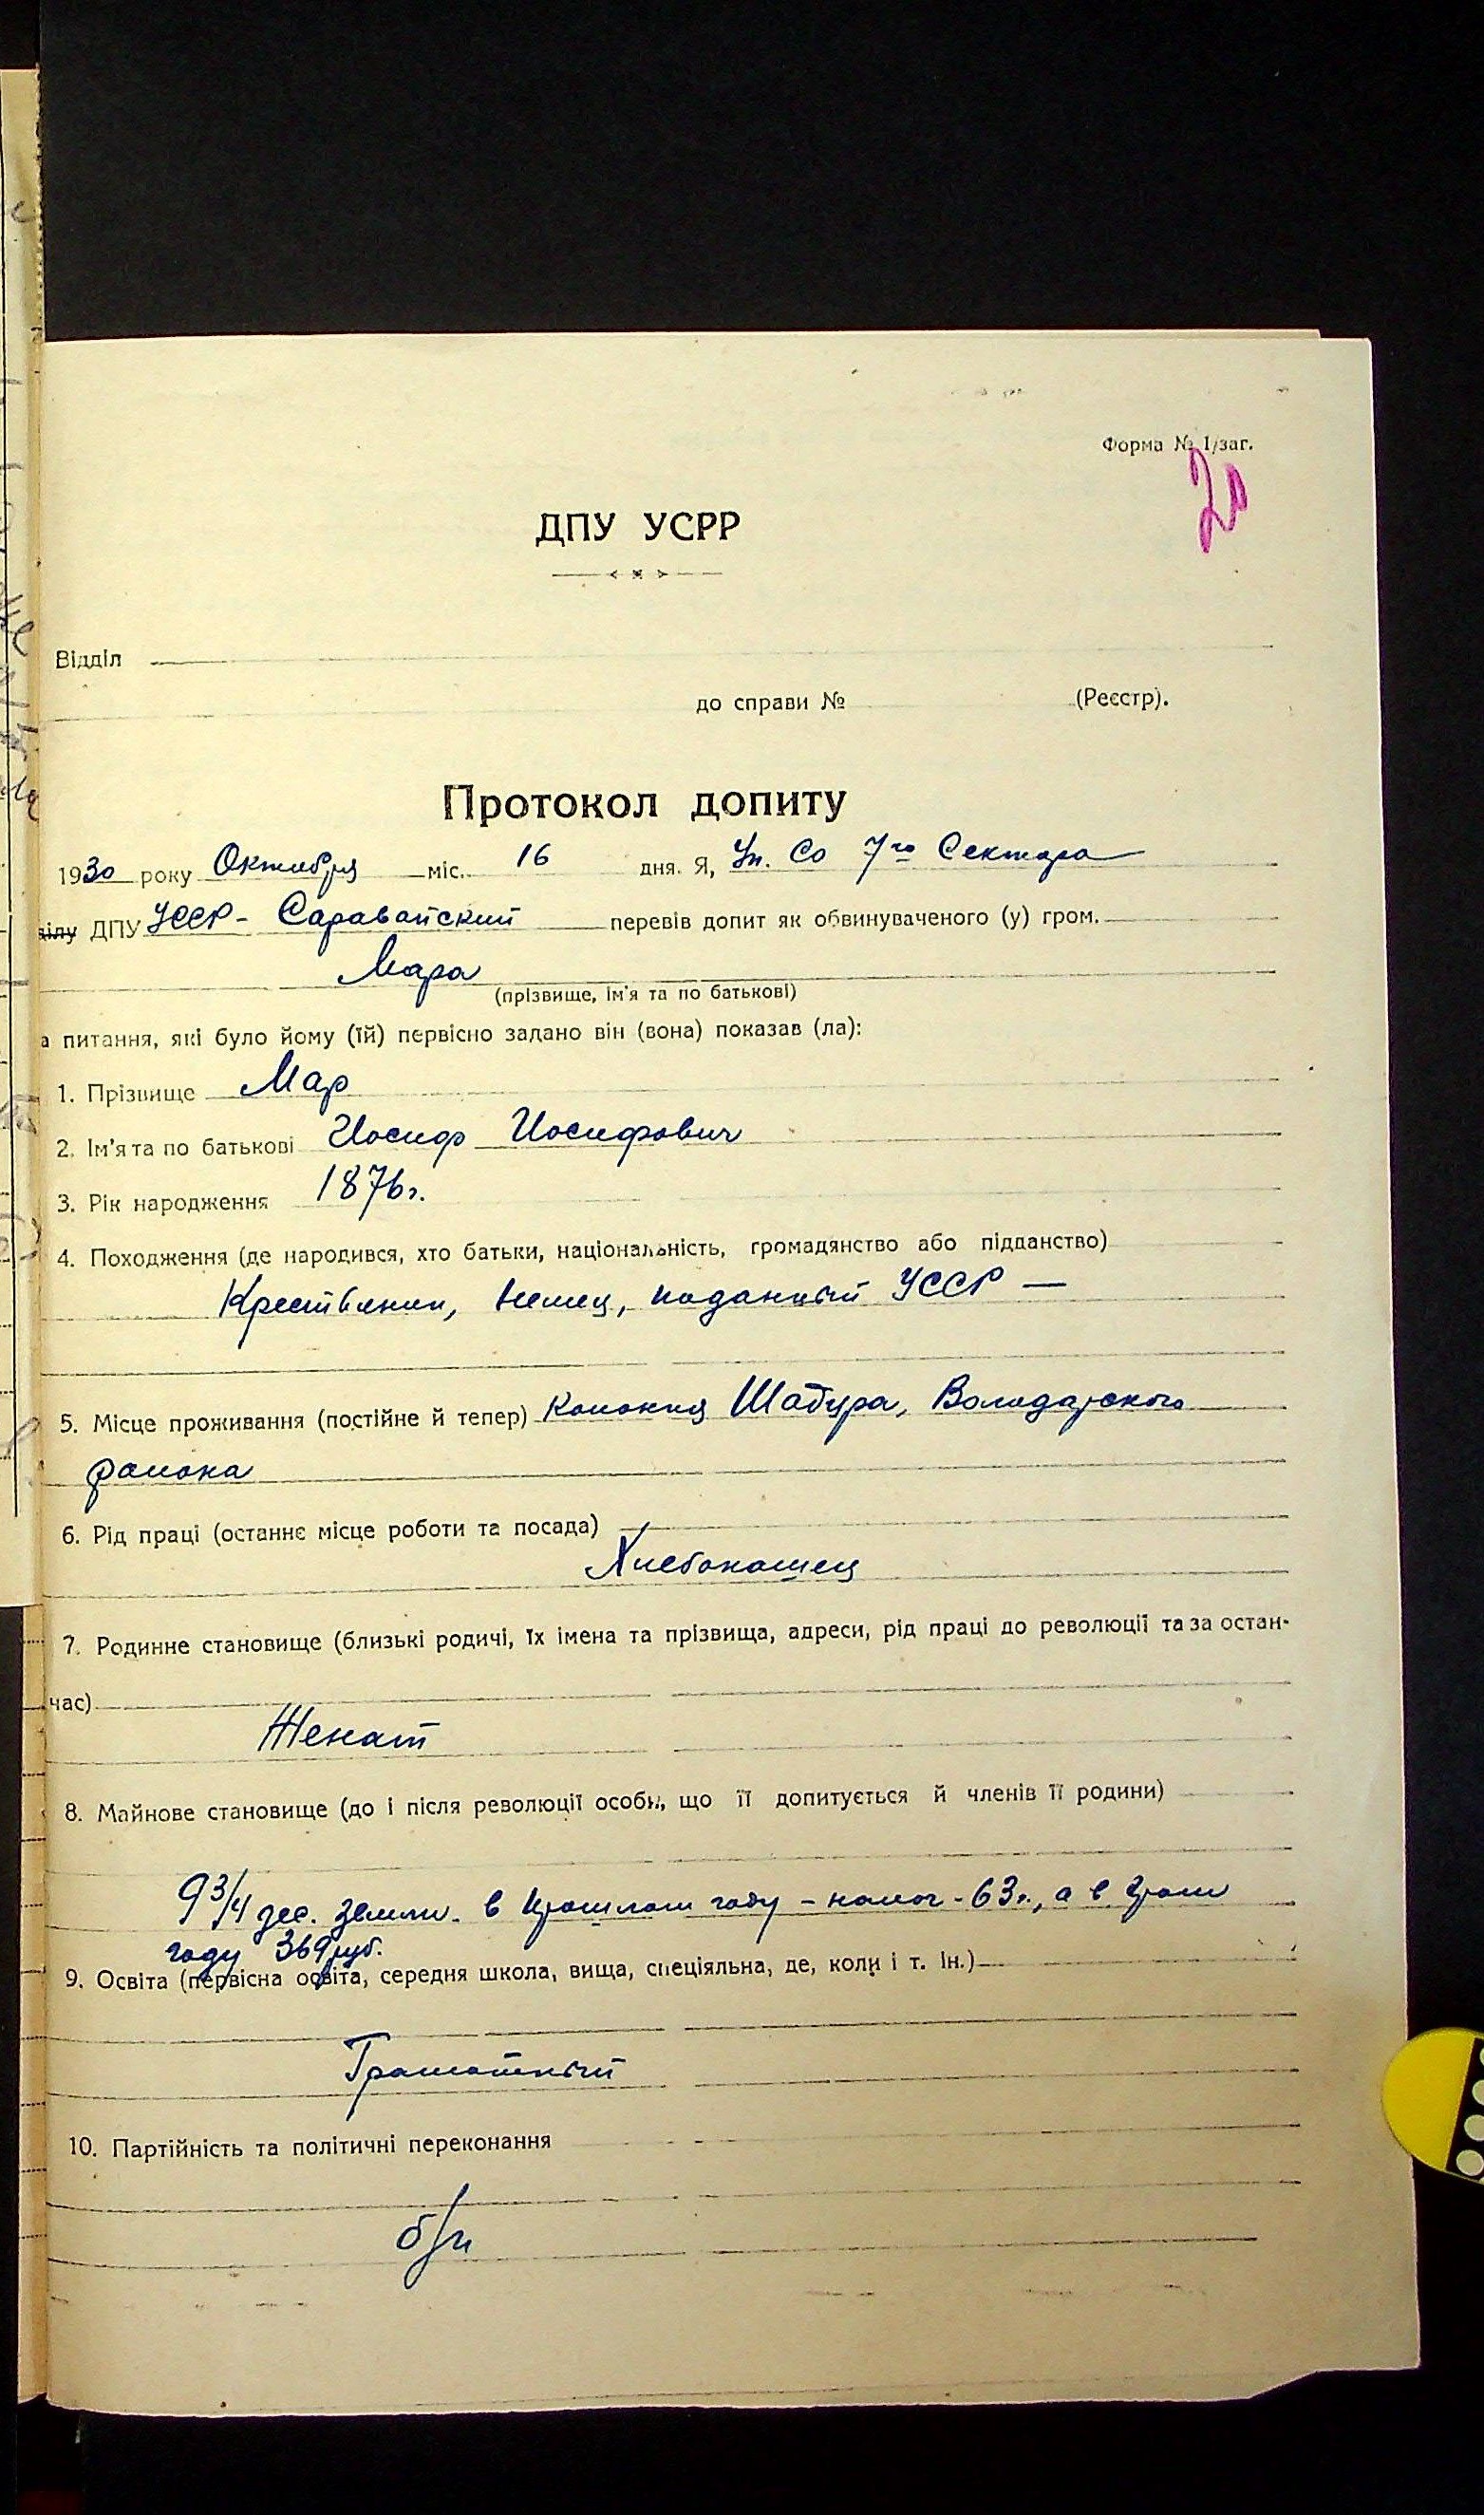 Форма № 1/заг.
20
ДПУ УСРР
Відділ
до справи № (Реєстр).
Протокол допиту
1930 року Октября міс. 16 дня. Я, Уп. Со 7го Сектора
ілу ДПУ УССР - Саравайский перевів допит як обвинуваченого (у) гром.
Мара
(прізвище, ім'я та по батькові)
а питання, які було йому (їй) первісно задано він (вона) показав (ла):
1. Прізвище Мар
2. Ім'я та по батькові Иосиф Иосифович
3. Рік народження 1876г.
4. Походження (де народився, хто батьки, національність, громадянство або підданство)
Крестьянин, немец, поданный УССР —
5. Місце проживання (постійне й тепер) колония Володарского
района
6. Рід праці (останнє місце роботи та посада)
Хлебопашец
7. Родинне становище (близькі родичі, їх імена та прізвища, адреси, рід праці до революції та за остан-
час)
Женат
8. Майнове становище (до і після революції особи, що її допитується й членів її родини)
9 3/4 дес. земли. в прошлом году - налог - 63р., а в этом
году 369 руб.
9. Освіта (первісна освіта, середня школа, вища, спеціяльна, де, коли і т. ін.)
Грамотный
10. Партійність та політичні переконання
б/п